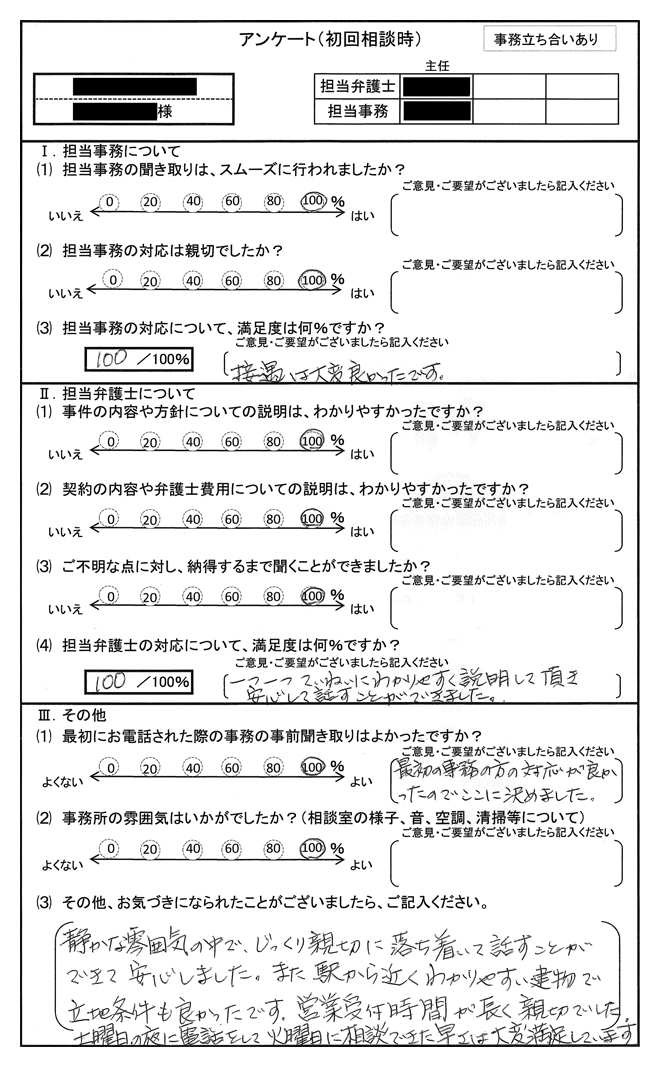 アンケート（初回相談時）
事務立ち合いあり
主任
担当弁護士
様
担当事務
Ⅰ．担当事務について
(1) 担当事務の聞き取りは、スムーズに行われましたか？
ご意見・ご要望がございましたら記入ください
0 20 40 60 80 100 %
いいえ はい
(2) 担当事務の対応は親切でしたか？
ご意見・ご要望がございましたら記入ください
0 20 40 60 80 100 %
いいえ はい
(3) 担当事務の対応について、満足度は何%ですか？
ご意見・ご要望がございましたら記入ください
100 /100%
接遇は大変良かったです。
Ⅱ．担当弁護士について
(1) 事件の内容や方針についての説明は、わかりやすかったですか？
ご意見・ご要望がございましたら記入ください
0 20 40 60 80 100 %
いいえ はい
(2) 契約の内容や弁護士費用についての説明は、わかりやすかったですか？
ご意見・ご要望がございましたら記入ください
0 20 40 60 80 100 %
いいえ はい
(3) ご不明な点に対し、納得するまで聞くことができましたか？
ご意見・ご要望がございましたら記入ください
0 20 40 60 80 100 %
いいえ はい
(4) 担当弁護士の対応について、満足度は何%ですか？
ご意見・ご要望がございましたら記入ください
100 /100%
一つ一つていねいにわかりやすく説明して頂き
安心して話すことができました。
Ⅲ．その他
(1) 最初にお電話された際の事務の事前聞き取りはよかったですか？
ご意見・ご要望がございましたら記入ください
0 20 40 60 80 100 %
よくない よい
最初の事務の方の対応が良か
ったのでここに決めました。
(2) 事務所の雰囲気はいかがでしたか？（相談室の様子、音、空調、清掃等について）
ご意見・ご要望がございましたら記入ください
0 20 40 60 80 100 %
よくない よい
(3) その他、お気づきになられたことがございましたら、ご記入ください。
静かな雰囲気の中で、じっくり親切に落ち着いて話すことが
できて安心しました。また駅から近くわかりやすい建物で
立地条件も良かったです。営業受付時間が長く親切でした。
土曜日の夜に電話をして火曜日に相談できた早さは大変満足しています